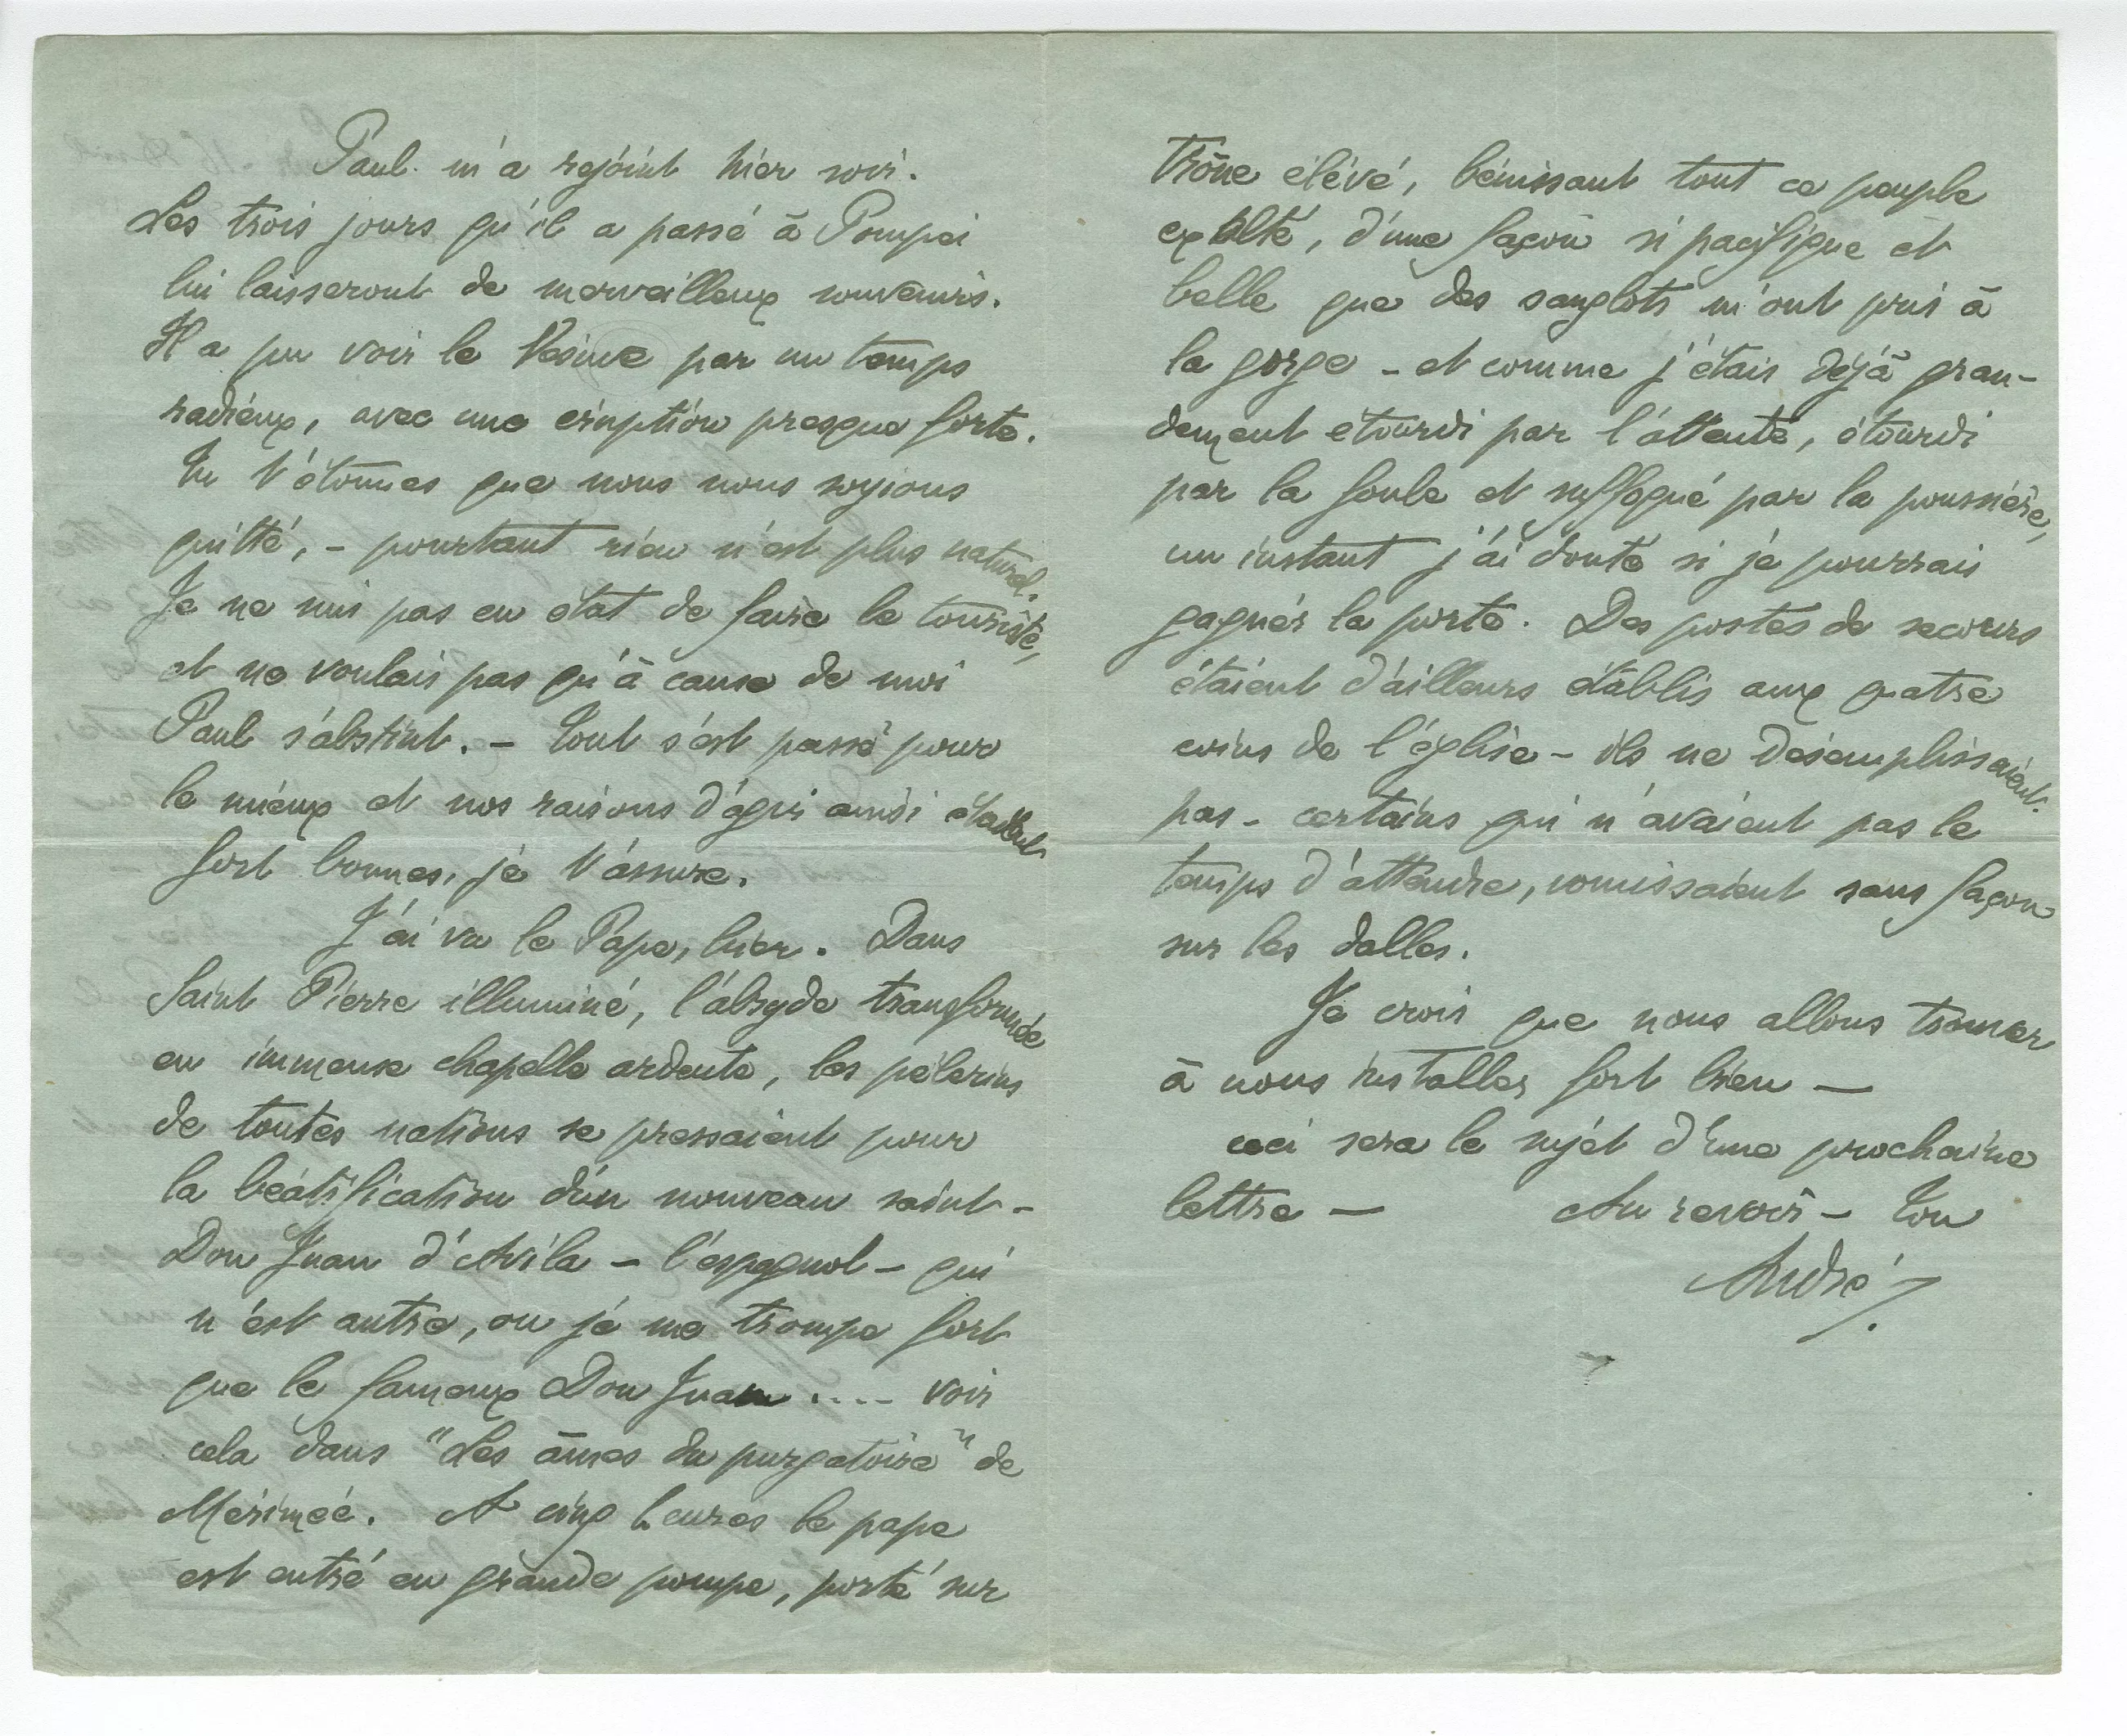 Paul m'a rejoint hier soir.
Les trois jours qu'il a passé à Pompei
lui laisseront de merveilleux souvenirs.
Il a pu voir le Vésuve par un temps
radieux, avec une éruption presque forte.
Tu t'étonnes que nous nous soyions
quitté, - pourtant rien n'est plus naturel.
Je ne suis pas en état de faire le touriste,
et ne voulais pas qu'à cause de moi
Paul s'abstint. - Tout s'est passé pour
le mieux et nos raisons d'agir ainsi étaient
fort bonnes, je t'assure.
J'ai vu le Pape, hier. Dans
Saint Pierre illuminé, l'absyde transformée
en immense chapelle ardente, les pèlerins
de toutes nations se pressaient pour
la béatification d'un nouveau saint -
Don Juan d'Avila - l'espagnol - qui
n'est autre, ou je me trompe fort
que le fameux Don Juan .... voir
cela dans "Les âmes du purgatoire" de
Mérimée. A cinq heures le pape
est entré en grande pompe, porté sur
trône élévé, bénissant tout ce peuple
exalté, d'une façon si pacifique et
belle que des sanglots m'ont pris à
la gorge - et comme j'étais déjà gran-
dement étourdi par l'attente, étourdi
par la foule et suffoqué par la poussière,
un instant j'ai douté si je pourrais
gagner la porte. Des postes de secours
étaient d'ailleurs établis aux quatre
coins de l'église - ils ne désemplissaient
pas - certains qui n'avaient pas le
temps d'attendre, vomissaient sans façon
sur les dalles.
Je crois que nous allons trouver
à nous installer fort bien —
ceci sera le sujet d'une prochaine
lettre — Au revoir - ton
André